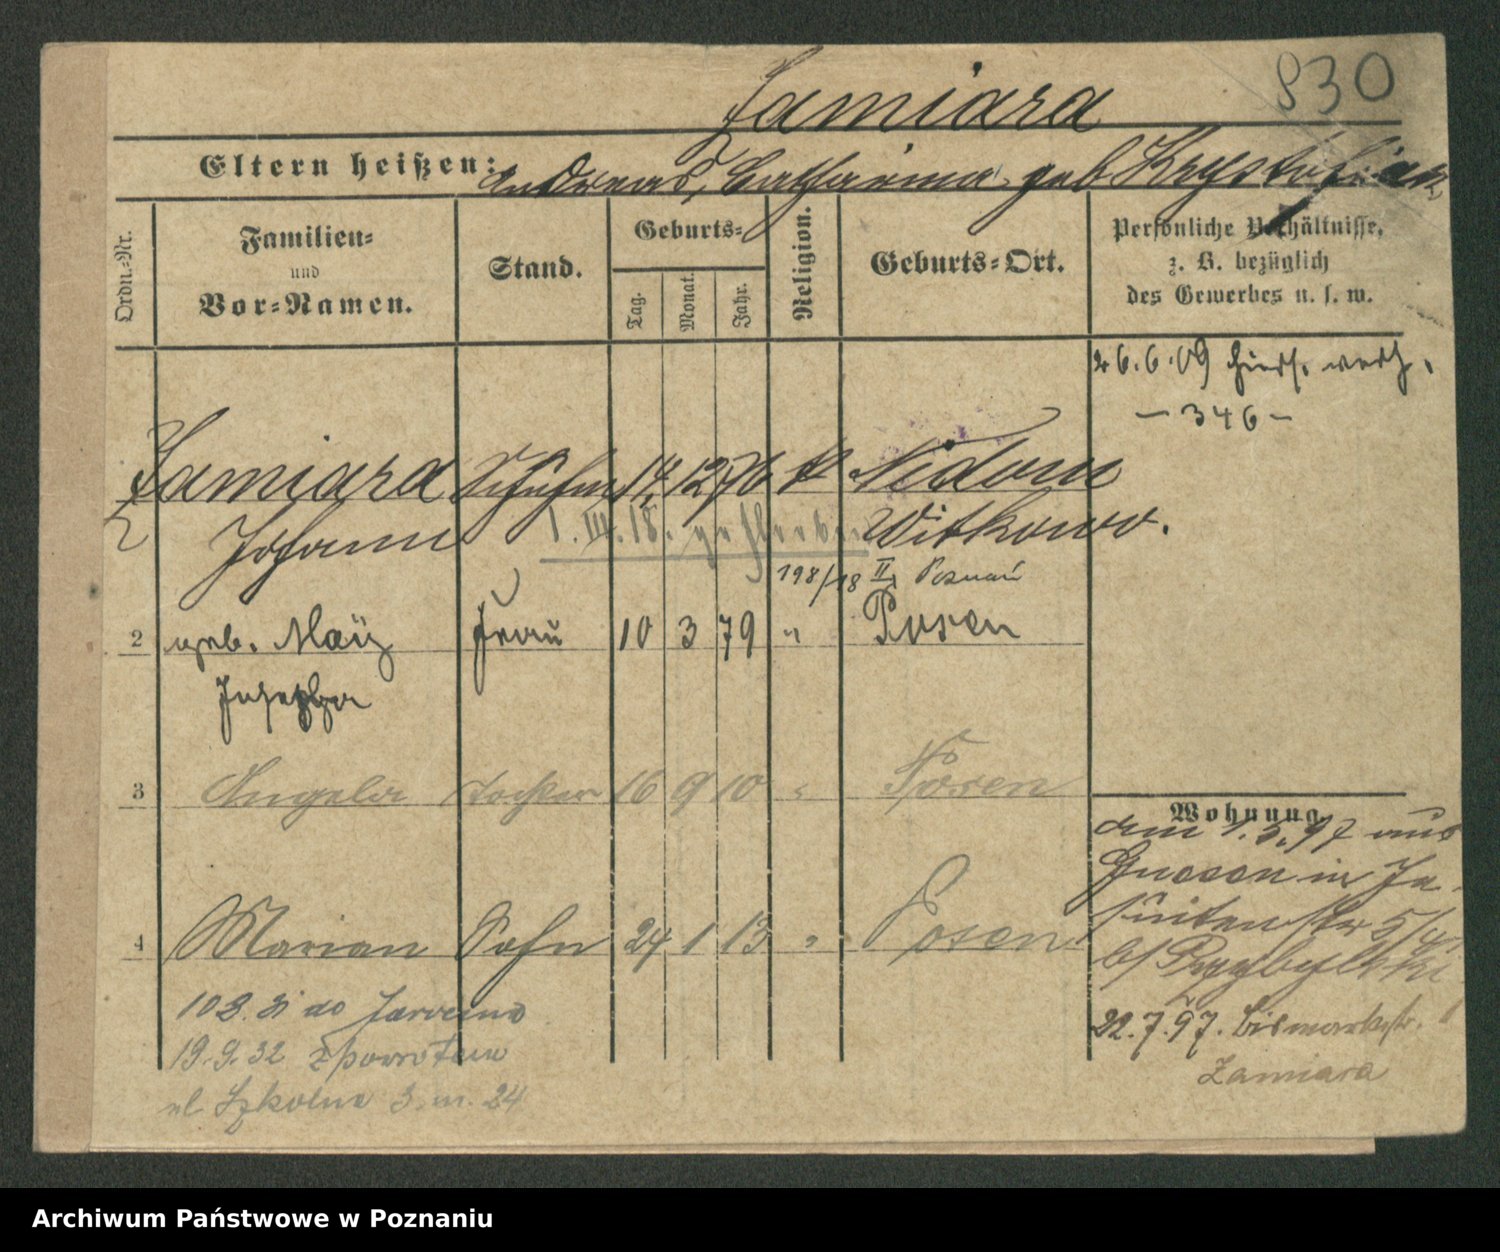 830
Zamiara
Eltern heißen: Andreas, Catharina geb Krystofiak
Ordn.-Nr.
Familien- und Vor-Namen.
Stand.
Geburts-
Tag. Monat. Jahr.
Religion.
Geburts-Ort.
Persönliche Verhältnisse,
z. B. bezüglich
des Gewerbes u. s. w.
26.6.09 hiers. verh.
- 346 -
Zamiara Schuhm 14. 12 76 k Nidom
Johann Witkowo.
1. III. 18. gestorben
198/18 II Poznań
2 geb. May Frau 10 3 79 " Posen
Josepha
3 Angela Tochter 16 9 10 " Posen
4 Marian Sohn 24 1 13 " Posen
Wohnung
am 1.5.97 aus
Gnesen in Je-
suitenstr 5/
b/ Przybylski
22.7.97. Bismarckstr.
Zamiara
10 8. 31 do Jarocina
19.9.32 z powrotem
ul Szkolna 3 m. 24
Archiwum Państwowe w Poznaniu